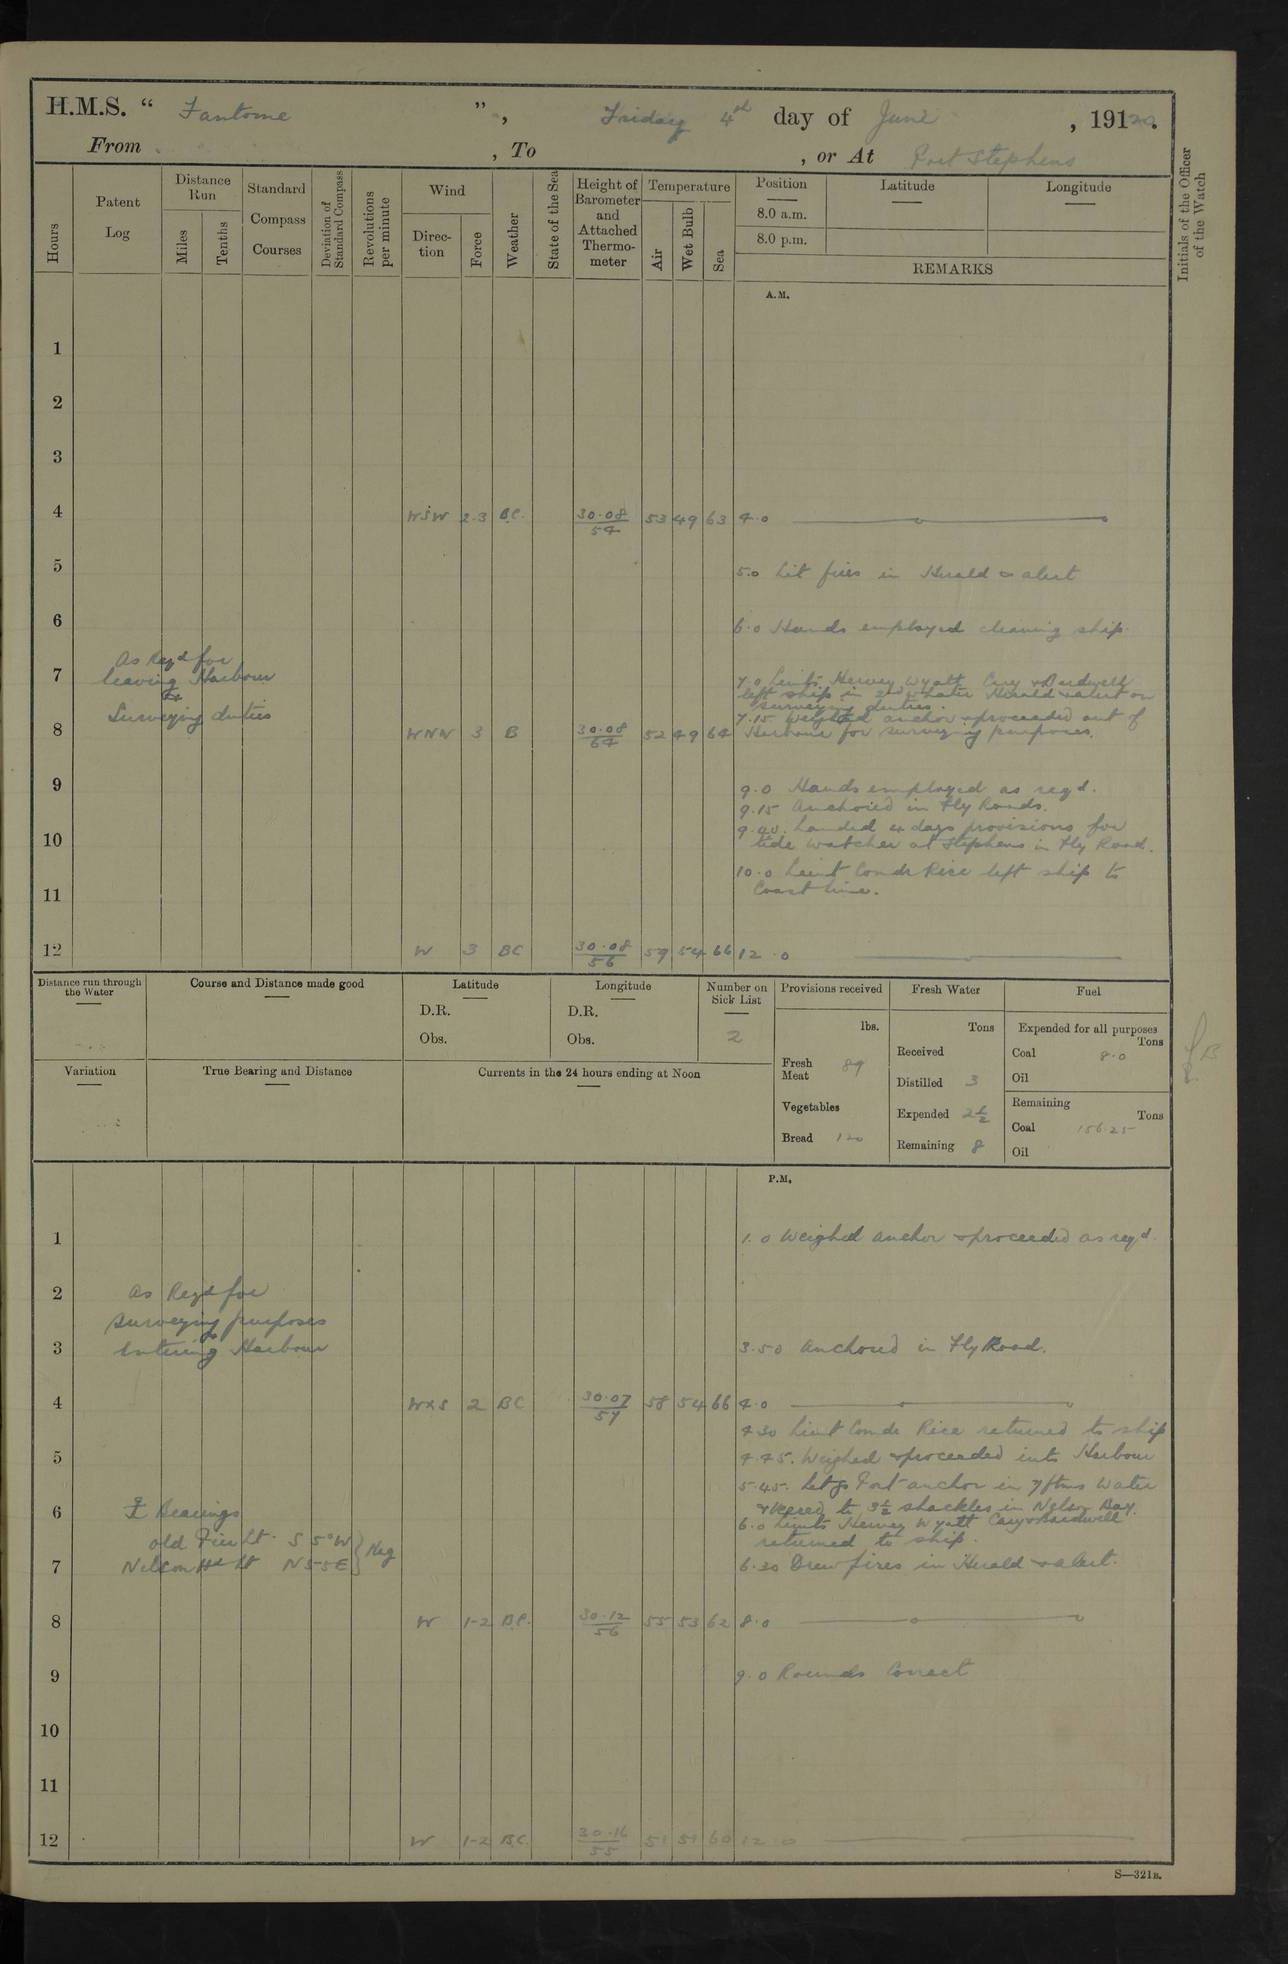 H.M.S. “ Fantome ”, Friday 4th day of June , 1920.
From , To , or At Port Stephens
Hours
Patent Log
Distance Run
Miles
Tenths
Standard Compass Courses
Deviation of Standard Compass
Revolutions per minute
Wind
Direction
Force
Weather
State of the Sea
Height of Barometer and Attached Thermometer
Temperature
Air
Wet Bulb
Sea
Position
8.0 a.m.
8.0 p.m.
Latitude
Longitude
REMARKS
Initials of the Officer of the Watch
A.M.
1
2
3
4 WSW 2.3 BC. 30.08/54 53 49 63 4.0
5 5.0 Lit fires in Herald & alert
6 6.0 Hands employed cleaning ship.
As Reqd for
7 leaving Harbour 7.0 Lieuts. Hervey Wyatt Cary & Bardwell
& left ship in Herald & alert on
Surveying duties surveying duties.
7.15 Weighed anchor & proceeded out of
8 WNW 3 B 30.08/64 52 49 64 Harbour for surveying purposes.
9 9.0 Hands employed as reqd.
9.15 Anchored in Fly Roads.
9.40. Landed 4 days provisions for
10 tide watcher at Stephens in Fly Road.
10.0 Lieut Comdr Rice left ship to
11 Coast line.
12 W 3 BC 30.08/56 59 54 66 12.0
Distance run through the Water
Course and Distance made good
Latitude
D.R.
Obs.
Longitude
D.R.
Obs.
Number on Sick List
2
Provisions received
lbs.
Fresh Meat 89
Vegetables
Bread 120
Fresh Water
Tons
Received
Distilled 3
Expended 2½
Remaining 8
Fuel
Expended for all purposes
Tons
Coal 8.0
Oil
Remaining
Tons
Coal 156.25
Oil
Variation
True Bearing and Distance
Currents in the 24 hours ending at Noon
P.M.
1 1.0 Weighed anchor & proceeded as reqd.
2 As Reqd for
surveying purposes
&
3 Entering Harbour 3.50 Anchored in Fly Road.
4 WxS 2 BC 30.07/57 58 54 66 4.0
4.30 Lieut Comdr Rice returned to ship
5 4.45. Weighed & proceeded into Harbour
5.45. Let go Port anchor in 7 fthms Water
6 Bearings & veered to 3½ shackles in Nelson Bay.
6.0 Lieuts Hervey Wyatt Cary & Bardwell
old Pier Lt. S 5°W } Mag returned to ship.
7 Nelson Hd Lt N 55 E 6.30 Drew fires in Herald & alert.
8 W 1-2 BC. 30.12/56 55 53 62 8.0
9 9.0 Rounds Correct
10
11
12 W 1-2 BC. 30.16/55 51 51 60 12.0
S—321B.